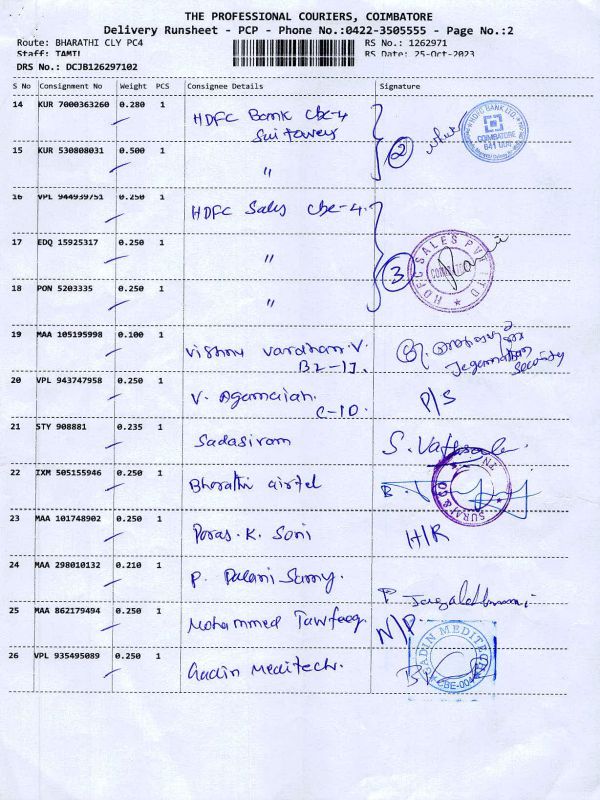 THE PROFESSIONAL COURIERS, COIMBATORE
Delivery Runsheet - PCP - Phone No.:0422-3505555 - Page No.:2
Route: BHARATHI CLY PC4 RS No.: 1262971
Staff: TAMIL RS Date: 25-Oct-2023
DRS No.: DCJB126297102
S No Consignment No Weight PCS Consignee Details Signature
14 KUR 7000363260 0.280 1 HDFC Bank cbe-4
2
HDFC BANK LTD. COIMBATORE
15 KUR 530808031 0.500 1 "
16 VPL 944939751 0.250 1 HDFC Sales cbe-4.
17 EDQ 15925317 0.250 1 "
3
HDFC SALES PVT LTD
18 PON 5203335 0.250 1 "
19 MAA 105195998 0.100 1 Vishnu Vardhan.V.
Jegannathan
Security
20 VPL 943747958 0.250 1 V. P/S
C-10.
21 STY 908881 0.235 1 Sadasivam S.
22 IXM 505155946 0.250 1 Bharathi airtel B.
SURAJ & CO
23 MAA 101748902 0.250 1 Paras. K. Soni H/R
24 MAA 298010132 0.210 1 P. Palani Samy.
P
25 MAA 862179494 0.250 1 Mohammed Tawfeeq. N/P.
26 VPL 935495089 0.250 1 Aadin Meditech.
AADIN MEDITECH
CBE-004